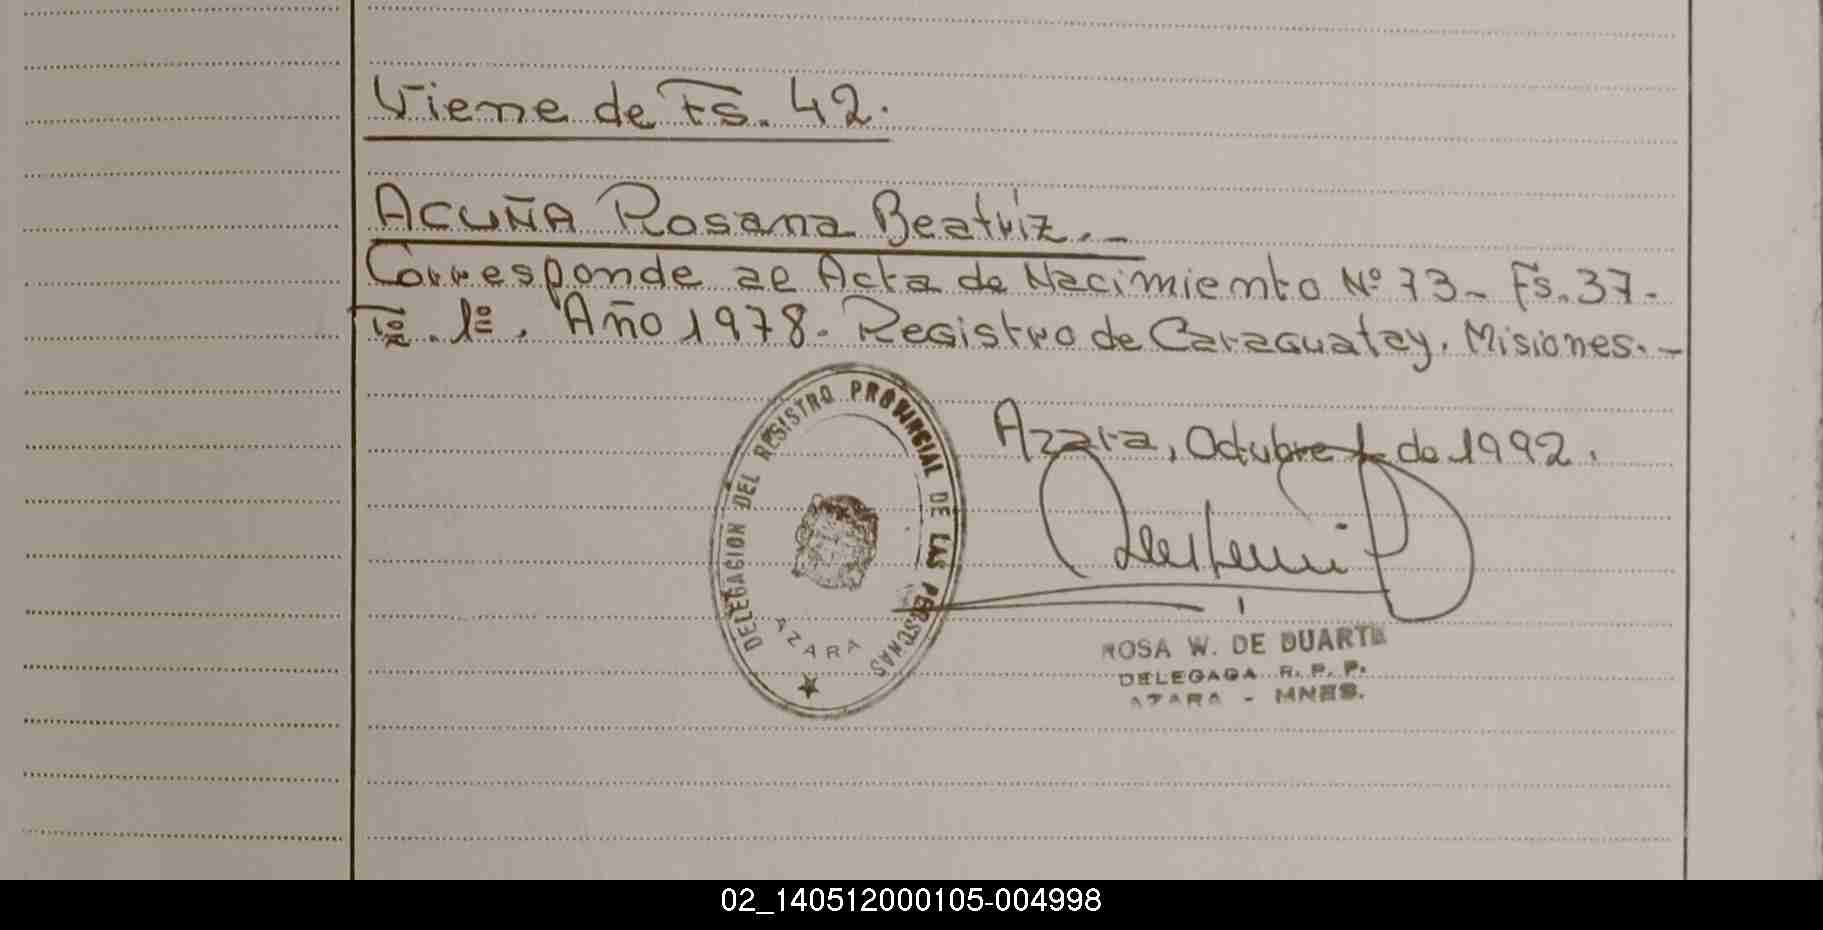 Viene de Fs. 42.
ACUÑA Rosana Beatriz.-
Corresponde al Acta de Nacimiento Nº 73- Fs. 37-
Tº. 1º. Año 1978. Registro de Caraguatay. Misiones.-
DELEGACION DEL REGISTRO PROVINCIAL DE LAS PERSONAS
AZARA
Azara, Octubre de 1992.
ROSA W. DE DUARTE
DELEGADA R. P. P.
AZARA - MNES.
02_140512000105-004998